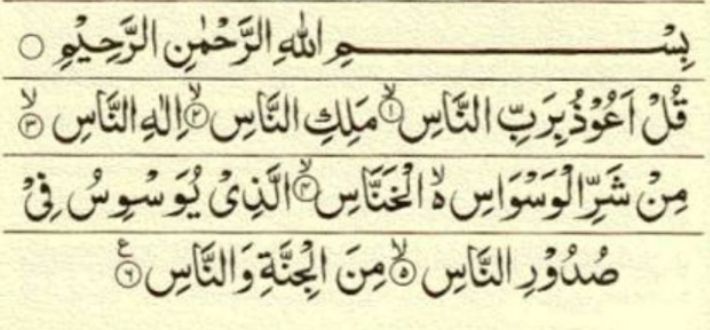 بِسْــــــــــــمِ اللهِ الرَّحْمٰنِ الرَّحِيْمِ ○
قُلْ اَعُوْذُ بِرَبِّ النَّاسِ ۙ۝۱ مَلِكِ النَّاسِ ۙ۝۲ اِلٰهِ النَّاسِ ۙ۝۳
مِنْ شَرِّ الْوَسْوَاسِ ۙ۬ الْخَنَّاسِ ۙ۝۴ الَّذِیْ یُوَسْوِسُ فِیْ
صُدُوْرِ النَّاسِ ۙ۝۵ مِنَ الْجِنَّةِ وَالنَّاسِ ۝۶ ع